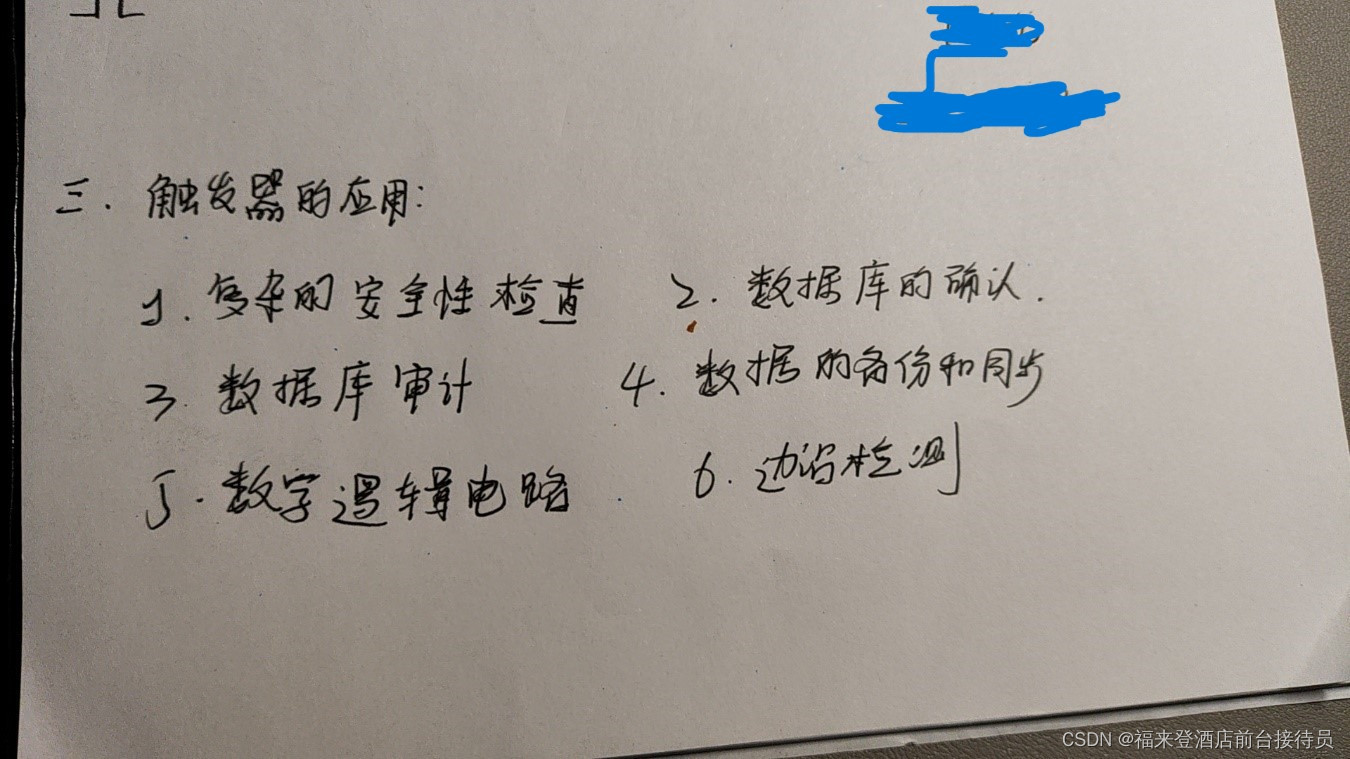 三. 触发器的应用:
1. 复杂的安全性检查 2. 数据库的确认.
3. 数据库审计 4. 数据的备份和同步
5. 数字逻辑电路 6. 边沿检测
CSDN @福来登酒店前台接待员